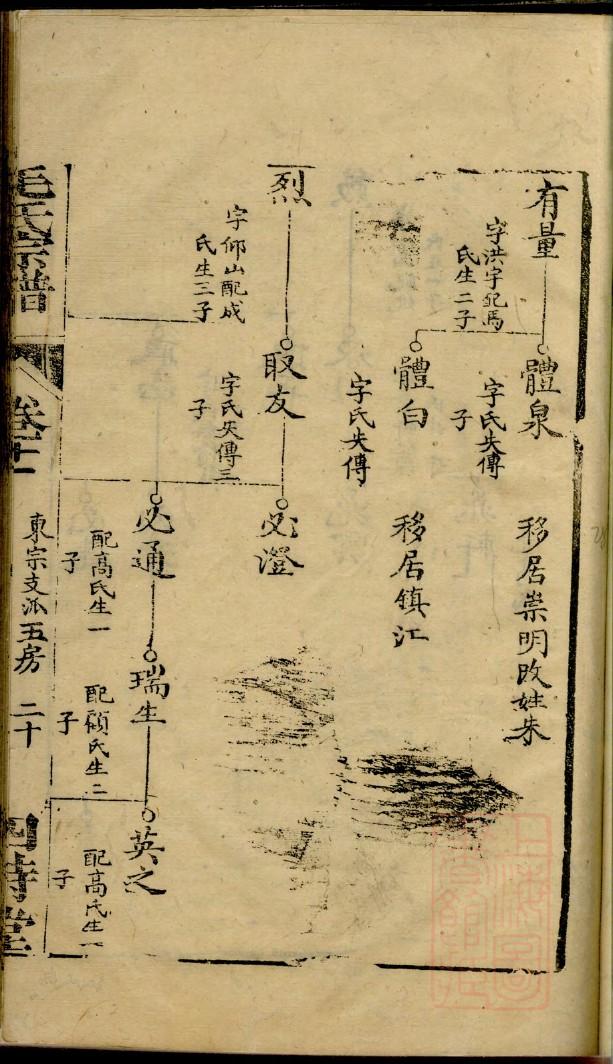 有量
字洪宇配馬
氏生二子
體泉
字氏失傳
子
移居崇明改姓朱
體白
字氏失傳
移居鎮江
烈
字仰山配成
氏生三子
取友
字氏失傳三
子
必澄
必通
配高氏生一
子
瑞生
配顧氏生二
子
英之
配高氏生一
子
毛氏宗譜
卷十一
東宗支派五房
二十